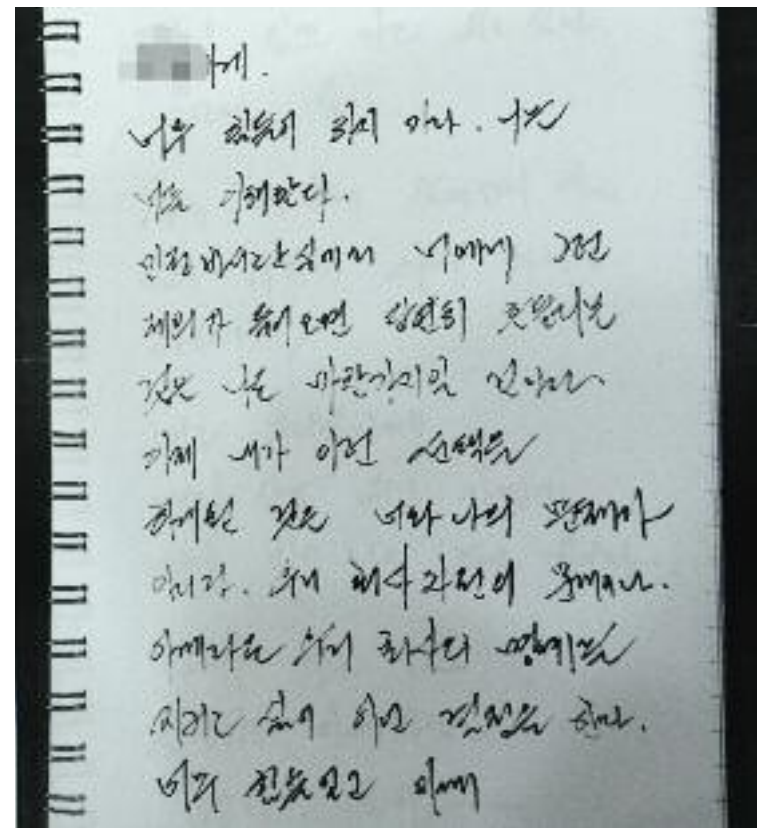 에.
너무 힘들어 하지 마라. 나는
너를 이해한다.
민정비서관실에서 너에게 그런
제의가 들어오면 당연히 흔들리는
것은 나도 마찬가지일 것이다.
이제 내가 이런 선택을
하게된 것은 너와 나의 문제가
아니라. 우리 회사 차원의 문제이다.
이제라도 우리 회사의 명예를
지키고 싶어 이런 결정을 한다.
너무 힘들었고